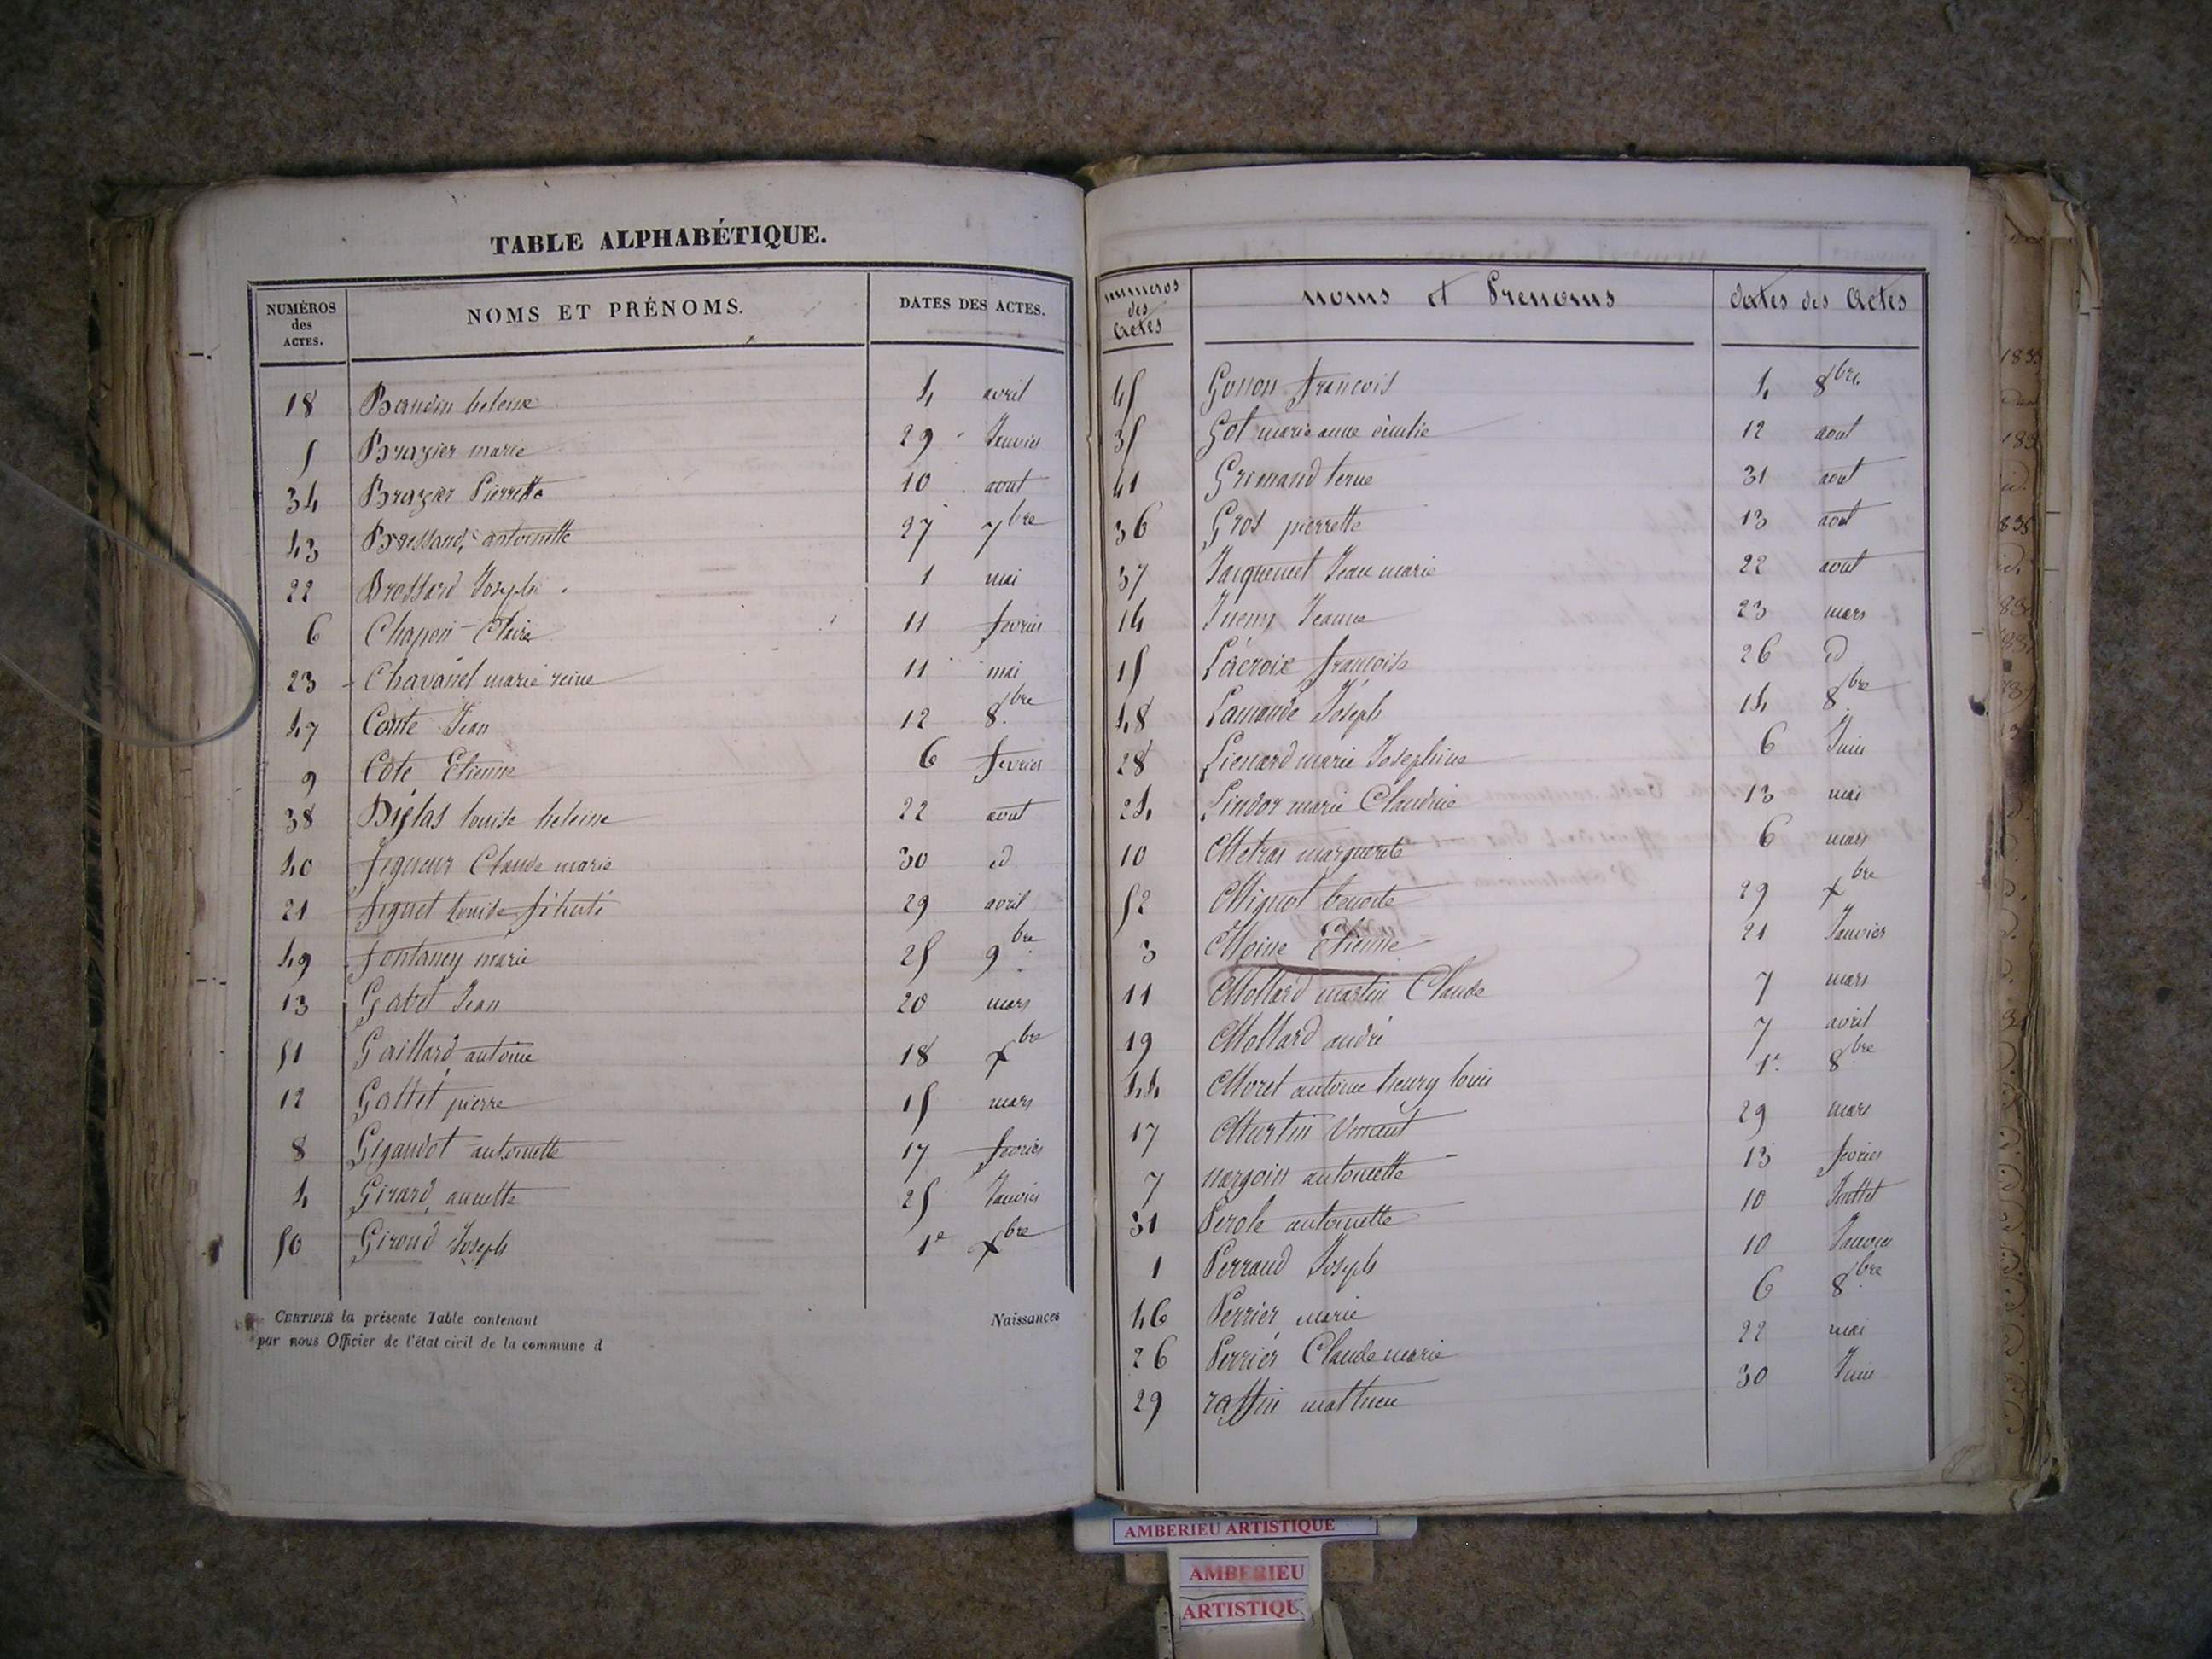 TABLE ALPHABÉTIQUE.
NUMÉROS des ACTES. NOMS ET PRÉNOMS. DATES DES ACTES.
18 Baudin heleine 4 avril
5 Brazier marie 29 Janvier
34 Brazier Pierrette 10 aout
43 Bressand, antoinette 27 7bre
22 Brossard Joseph 1 mai
6 Chapon Claire 11 fevrier
23 Chavanel marie reine 11 mai
47 Comte Jean 12 8bre
9 Cote Etienne 6 fevrier
38 louise heleine 22 aout
40 Claude marie 30 id
21 figuet Louise félicité 29 avril
49 fontaney marie 25 9bre
13 Gabet Jean 20 mars
51 Gaillard antoine 18 xbre
12 Gallet pierre 15 mars
8 antoinette 17 fevrier
4 Girard, annette 25 Janvier
50 Giroud Joseph 1e xbre
CERTIFIÉ la présente Table contenant Naissances
par nous Officier de l'état civil de la commune d
numeros des Actes noms et Prenoms dates des Actes
45 Gonon francois 4 8bre
35 Got marie anne émelie 12 aout
41 Grimaud 31 aout
36 Gros pierrette 13 aout
37 Jacquemet Jean marie 22 aout
14 Jeanne 23 mars
15 Lacroix françoise 26 id
48 Lamande Joseph 14 8bre
28 Lienard marie Josephine 6 Juin
24 Lindor marie Claudine 13 mai
10 Metras marguerite 6 mars
52 Mignot benoite 29 xbre
3 Moine Etienne 21 Janvier
11 Mollard martin Claude 7 mars
19 Mollard andré 7 avril
44 Moret antoine henry louis 1e 8bre
17 Martin Vincent 29 mars
7 nargoin antoinette 13 fevrier
31 Perole antoinette 10 Juillet
1 Perraud Joseph 10 Janvier
46 Perrier marie 6 8bre
26 Perrier Claude marie 22 mai
29 raffin mathieu 30 Juin
AMBERIEU ARTISTIQUE
AMBERIEU
ARTISTIQU